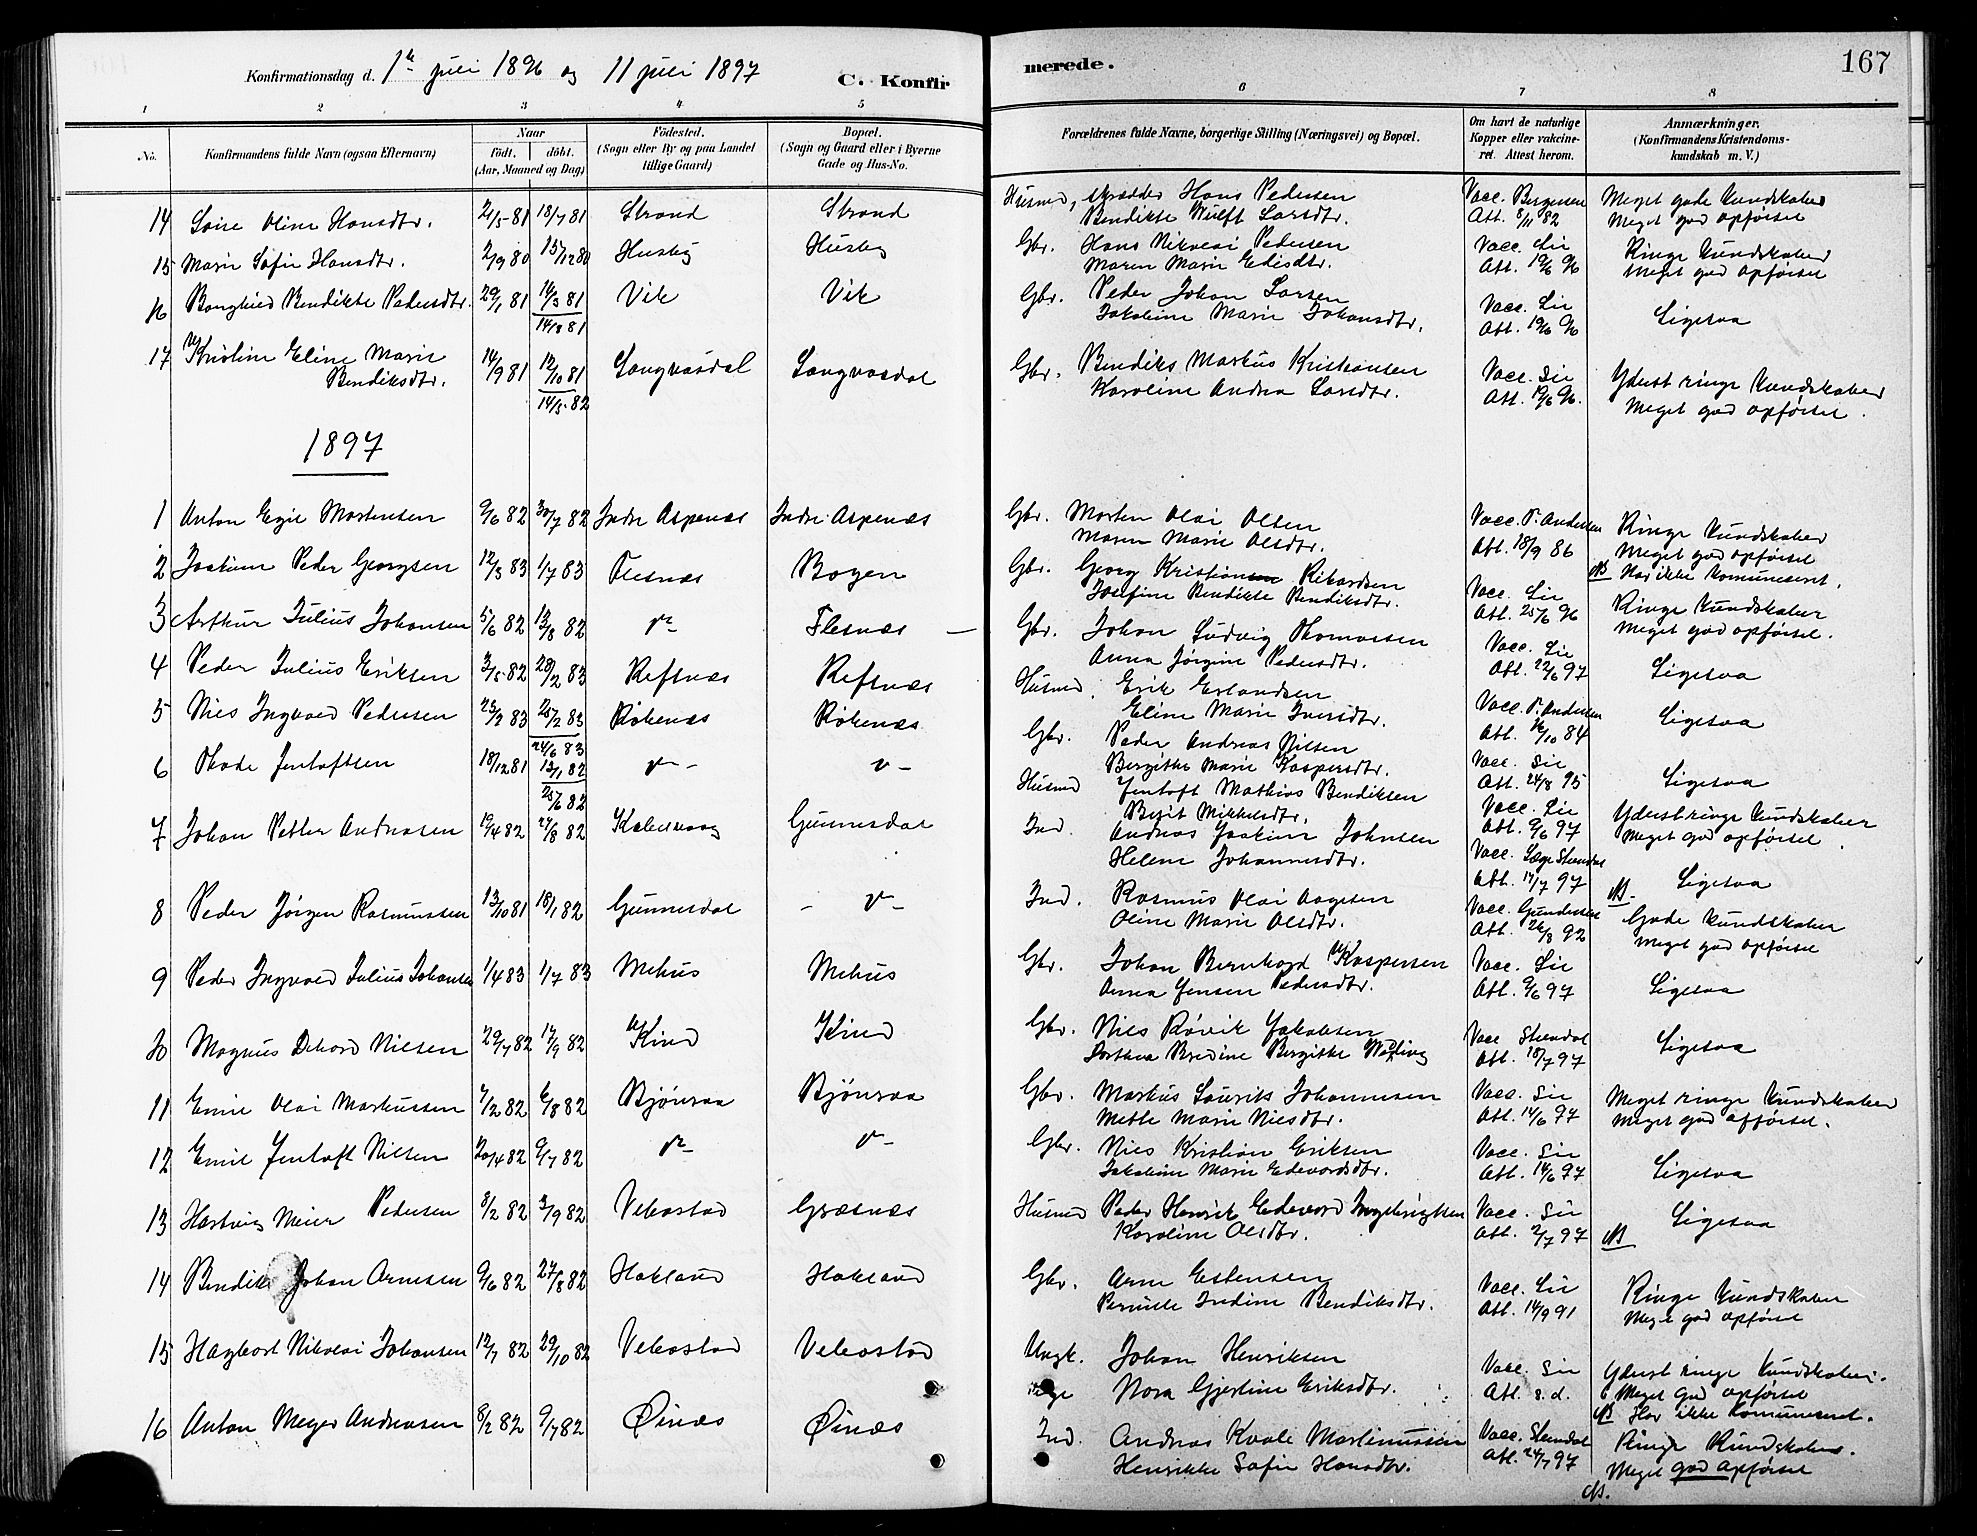 Konfirmationsdag d. 1te juli 1896 og 11 juli 1897
C. Konfirmerede.
167
1 2 3 4 5 6 7 8
No.
Konfirmandens fulde Navn (ogsaa Efternavn)
Naar
födt. döbt.
(Aar, Maaned og Dag)
Födested.
(Sogn eller By og paa Landet tillige Gaard)
Bopæl.
(Sogn og Gaard eller i Byerne Gade og Hus-No.
Forældrenes fulde Navne, borgerlige Stilling (Næringsvei) og Bopæl.
Om havt de naturlige Kopper eller vakcineret. Attest herom.
Anmærkninger.
(Konfirmandens Kristendomskundskab m. V.)
14 Oline Hansdtr. 2/5 81 18/7 81 Strand Strand Husmd, skrædder Hans Pedersen Vacc. Bergersen Meget gode kundskaber
Bendikte Wulff Larsdtr. Att. 8/11 82 Meget god opførsel
15 Marie Sofie Hansdtr. 2/9 80 Husby Husby Gbr. Hans Nikolai Pedersen Vacc. Lie Ringe kundskaber
Maren Marie Edisdtr. Att. 19/6 96 Meget god opførsel
16 Bendikte Pedersdtr. 29/1 81 14/3 81 Vik Vik Gbr. Peder Johan Larsen Vacc. Lie Ligesaa
14/8 81 Jakobine Marie Johansdtr. Att. 19/6 96
17 Kristine Eline Marie 14/9 81 12/10 81 Langvasdal Langvasdal Gbr. Bendiks Markus Kristiansen Vacc. Lie Yderst ringe kundskaber
Bendiksdtr. 14/5 82 Karoline Andrea Larsdtr. Att. 19/6 96. Meget god opførsel.
1897
1 Anton Egil Mortensen 9/6 82 30/7 82 Indre Aspenæs Indre Aspenæs Gbr. Morten Olai Olsen Vacc. P. Andersen Ringe kundskaber
Maren Marie Olsdtr. Att. 18/9 86 Meget god opførsel
2 Joakim Peder Georgsen 12/3 83 1/7 83 Flesnæs Bogen Gbr. Georg Kristian Rikardsen Vacc. Lie NB Har ikke komuniseret.
Josefine Bendikte Bendiksdtr. Att. 25/6 96 Ringe kundskaber
3 Arthur Julius Johansen 5/6 82 13/8 82 Flesnæs Gbr. Johan Ludvig Thomassen Vacc. Lie Meget god opførsel.
Anna Jørgine Pedersdtr. Att. 22/6 97
4 Peder Julius Eriksen 3/5 82 28/2 83 Refsnæs Refsnæs Husmd. Erik Erlandsen Ligesaa
Eline Marie Iversdtr. Vacc. P. Andersen
5 Nils Ingvald Pedersen 23/2 83 25/2 83 Røkenæs Røkenæs Gbr. Peder Andreas Nilsen Att. 16/10 84 Ligesaa
24/6 83 Bergitte Marie Kaspersdtr. Vacc. Lie
6 Thode Jentoftsen 18/12 81 12/1 82 Husmd Jentoft Mathias Bendiksen Att. 24/8 95 Ligesaa
25/6 82 Berit Mikkelsdtr.
7 Johan Petter Andreasen 19/4 82 27/8 82 Gunnesdal Ind. Andreas Joakim Johnsen Vacc. Lie Yderst ringe kundskaber
Helene Johannesdtr. Att. 9/6 97 Meget god opførsel.
8 Peder Jörgen Rasmussen 13/10 81 18/1 82 Gunnesdal Ind. Rasmus Olai Aagesen Vacc. Læge Stendal Ligesaa
Oline Marie Olsdtr. Att. 14/7 97 NB.
Vacc. Gundersen Gode kundskaber
Att. 26/8 92 Meget god opførsel
9 Peder Ingvald Julius Johansen 1/4 83 1/7 83 Melhus Melhus Gbr. Johan Bernhard Kaspersen Vacc. Lie Ligesaa
Anna Jensen Pedersdtr. Att. 9/6 97
10 Magnus Nilsen 29/7 82 17/9 82 Kind Kind Gbr. Nils Røvik Jakobsen Vacc Stendal Ligesaa
Dorthea Bredine Bergitte Att. 18/7 97
11 Emil Olai Markussen 7/2 82 6/8 82 Bjønraa Bjønraa Gbr. Markus Laurits Johannesen Vacc. Lie Meget ringe kundskaber
Mette Marie Nilsdtr. Att. 14/6 97 Meget god opførsel.
12 Emil Jentoft Nilsen 30/4 82 9/7 82 Gbr. Nils Kristian Eriksen Vacc. Lie Ligesaa
Jakobine Marie Edevardsdtr. Att. 14/6 97
13 Hartvig Meier Pedersen 8/2 82 3/9 82 Vebostad Græsnæs Husmd Peder Henrik Edevard Ingebrigtsen Vacc. Lie Ligesaa
Karoline Olsdtr. Att. 2/7 97 NB
14 Bendik Johan Arnesen 9/6 82 27/8 82 Hokland Hokland Gbr. Arne Estensen Vacc. Lie Ringe kundskaber
Pernille Indine Bendiksdtr. Att. 14/9 91 Meget god opførsel
15 Hagbart Nikolai Johansen 12/7 82 29/10 82 Vebostad Vebostad Ungk. Johan Henriksen Vacc. Lie Yderst ringe kundskaber.
Nora Gjertine Eriksdtr. Att. s. d. Meget god opførsel
NB Har ikke komuniseret.
16 Anton Meyer Andreasen 8/2 82 9/7 82 Øinæs Øinæs Ind. Andreas Kvale Martinussen Vacc. Stendal Ringe kundskaber.
Henrikke Sofie Hansdtr. Att. 24/7 97 Meget god opførsel
NB.